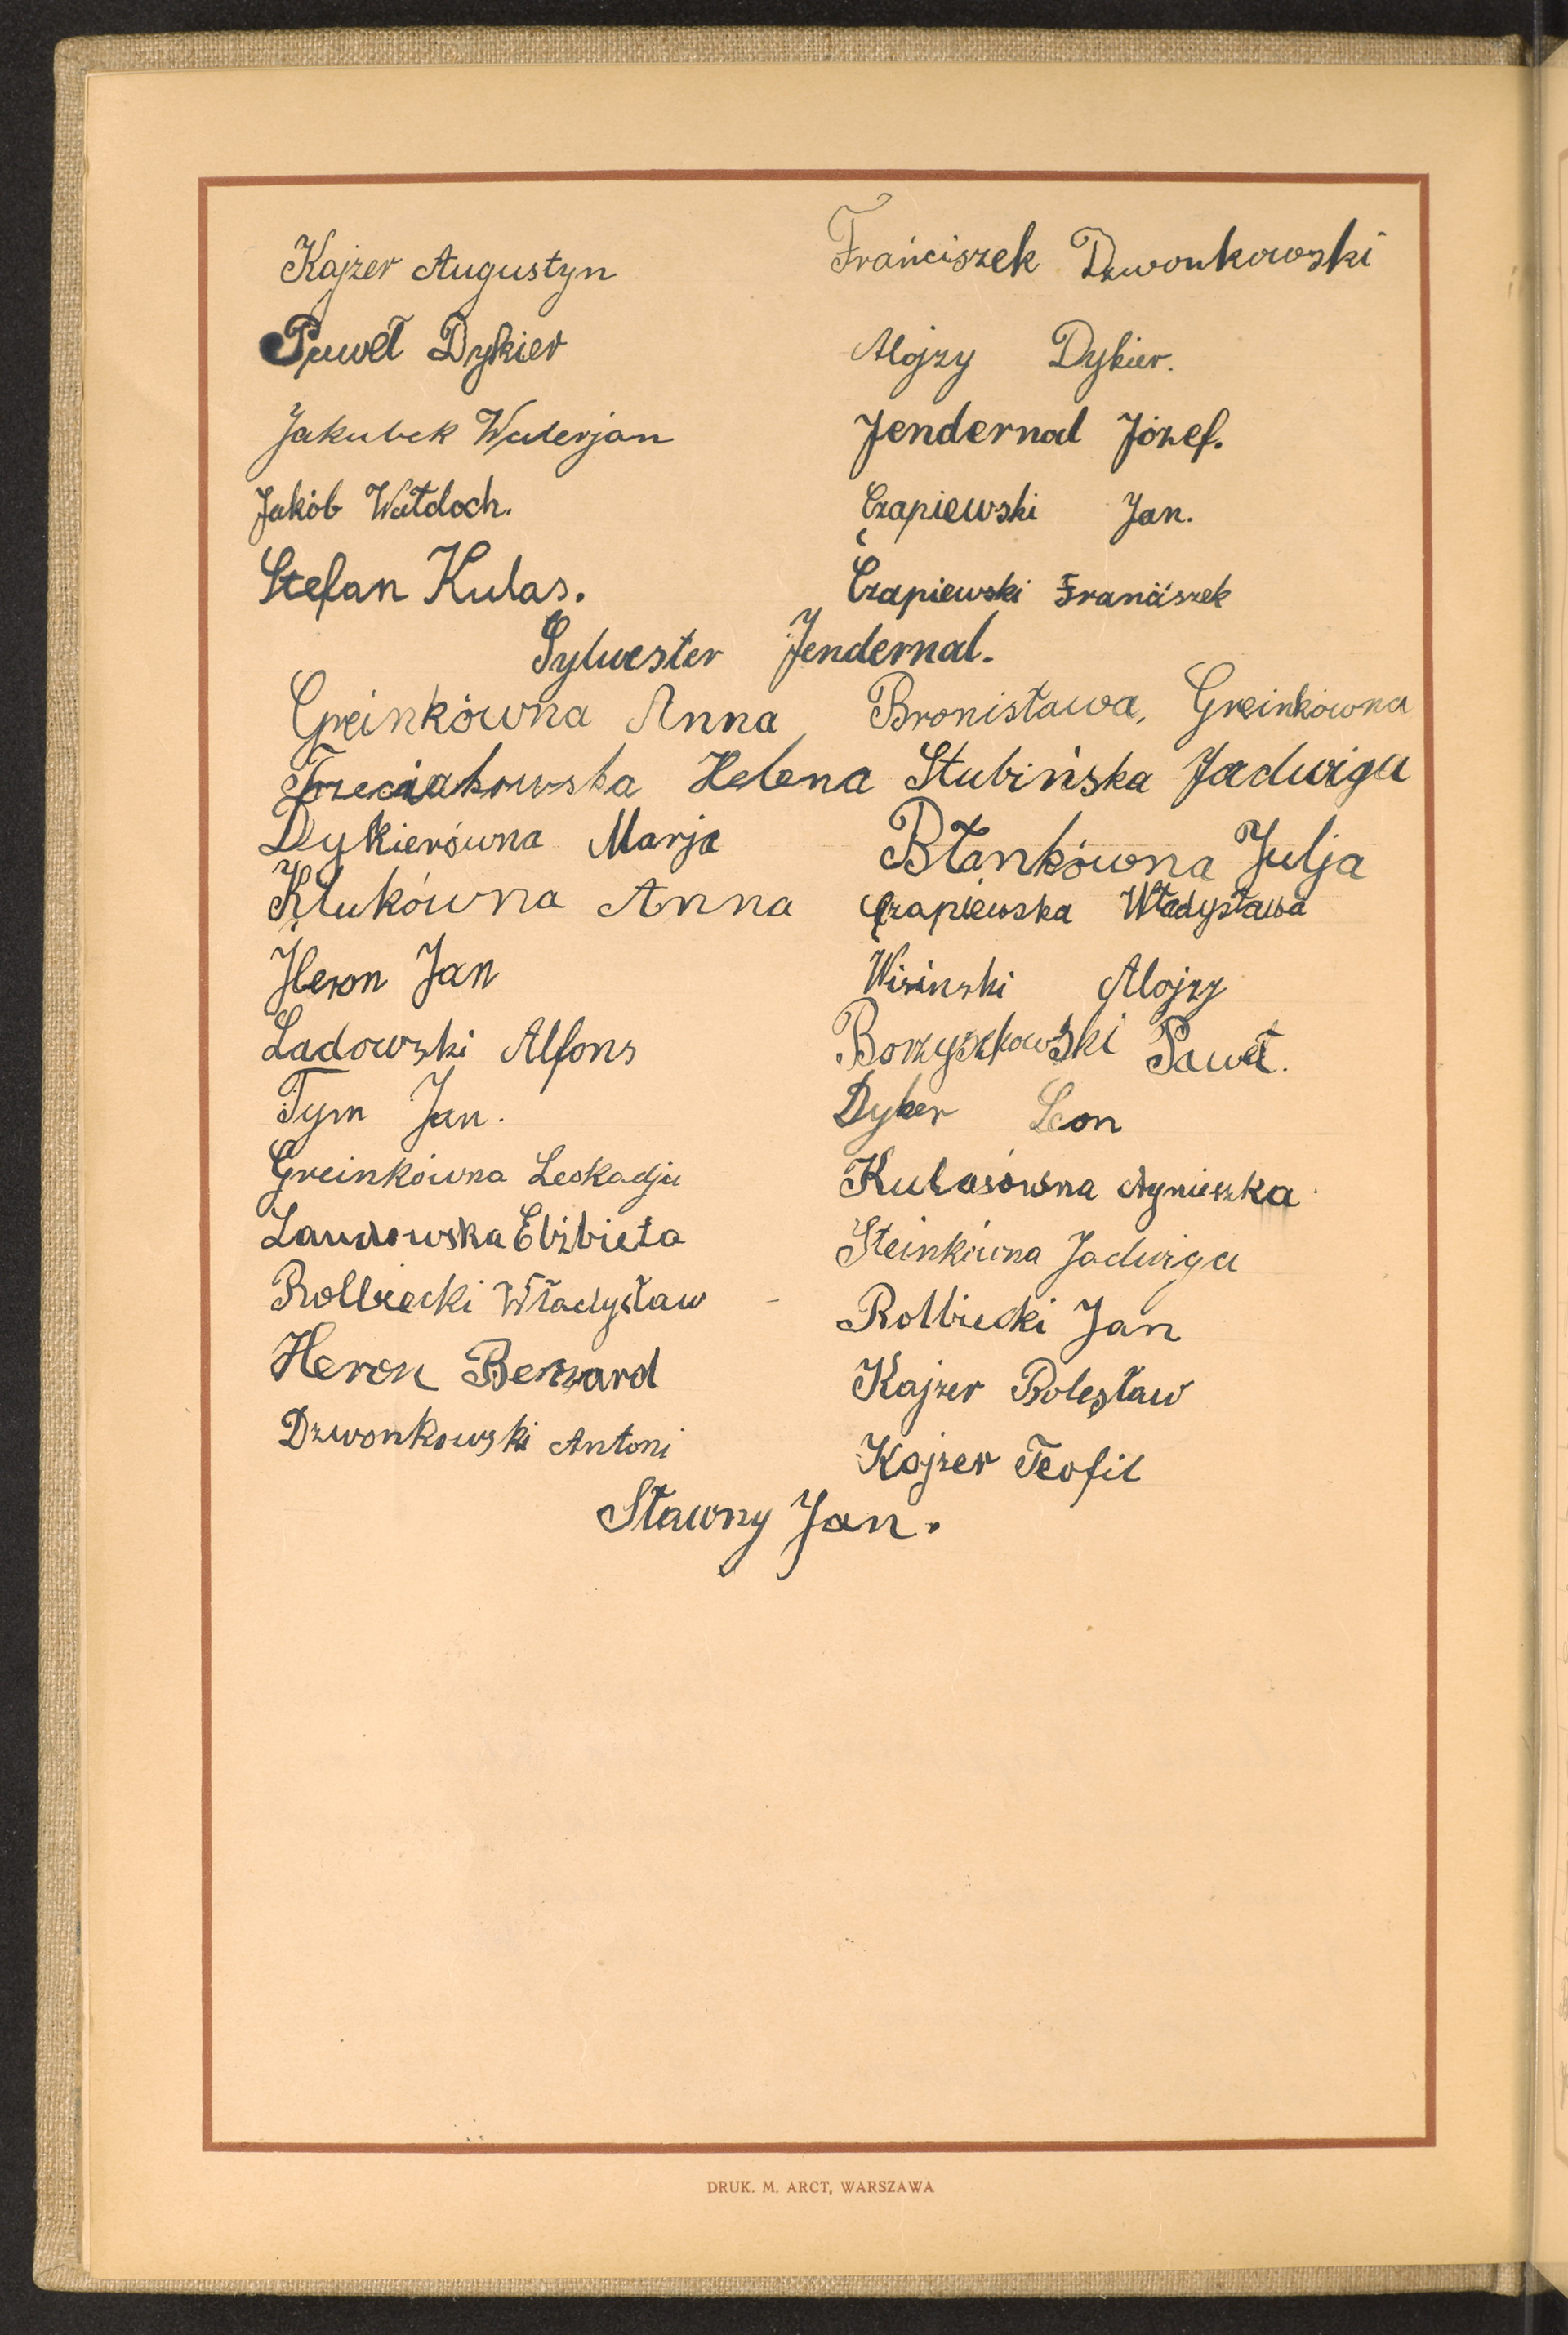 Kajzer Augustyn Frańciszek Dzwonkowski
Paweł Dykier Alojzy Dykier.
Jakubek Walerjan Jendernal Józef.
Jakób Wałdoch. Czapiewski Jan.
Stefan Kulas. Czapiewski Franciszek
Sylwester Jendernal.
Greinkówna Anna Bronisława, Greinkówna
Trzeciakowska Helena Słubińska Jadwiga
Dykierówna Marja Błankówna Julja
Klukówna Anna Czapiewska Władysława
Heron Jan Wisinski Alojzy
Ladowski Alfons Borzyszkowski Paweł.
Tym Jan. Dyker Leon
Greinkówna Leokadja Kulasówna Agnieszka
Landowska Elżbieta Steinkówna Jadwiga
Rolbiecki Władysław - Rolbiecki Jan
Heron Bernard Kajzer Bolesław
Dzwonkowski Antoni Kajzer Teofil
Sławny Jan.
DRUK. M. ARCT, WARSZAWA